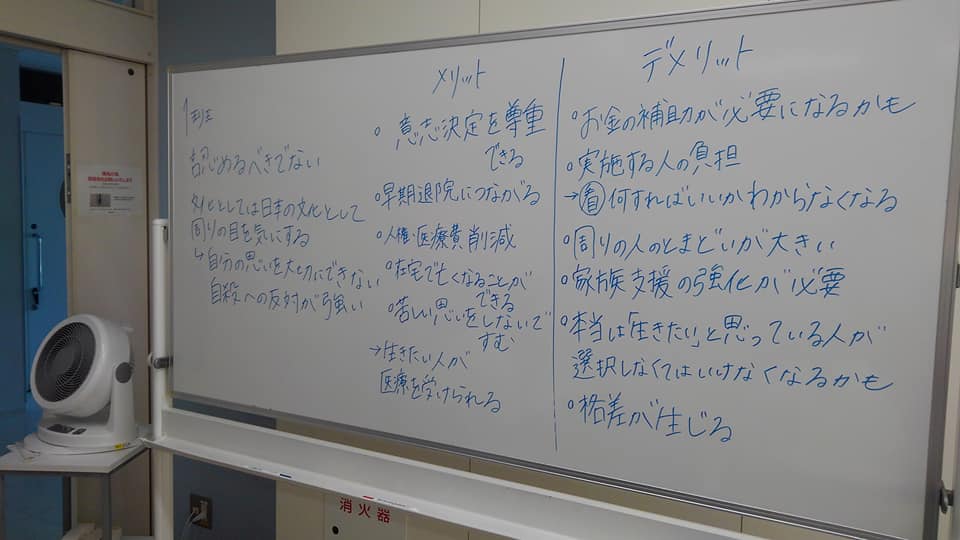 1班
認めるべきでない
外としては日本の文化として
周りの目を気にする
↳自分の思いを大切にできない
自殺への反対が強い
メリット
○ 意志決定を尊重
できる
○早期退院につながる
○人権・医療費削減
○在宅で亡くなることが
できる
○苦しい思いをしないで
すむ
→生きたい人が
医療を受けられる
デメリット
○お金の補助が必要になるかも
○実施する人の負担
→看何すればいいかわからなくなる
○周りの人のとまどいが大きい
○家族支援の強化が必要
○本当は「生きたい」と思っている人が
選択しなくてはいけなくなるかも
○格差が生じる
消火器